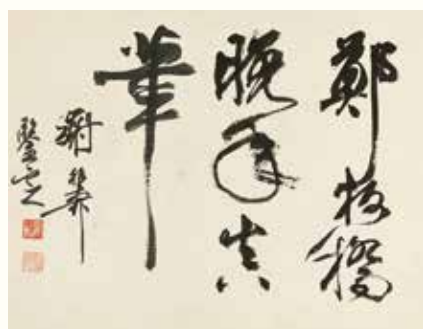 鄭板橋
晚年真
筆
謝稚
鑒定